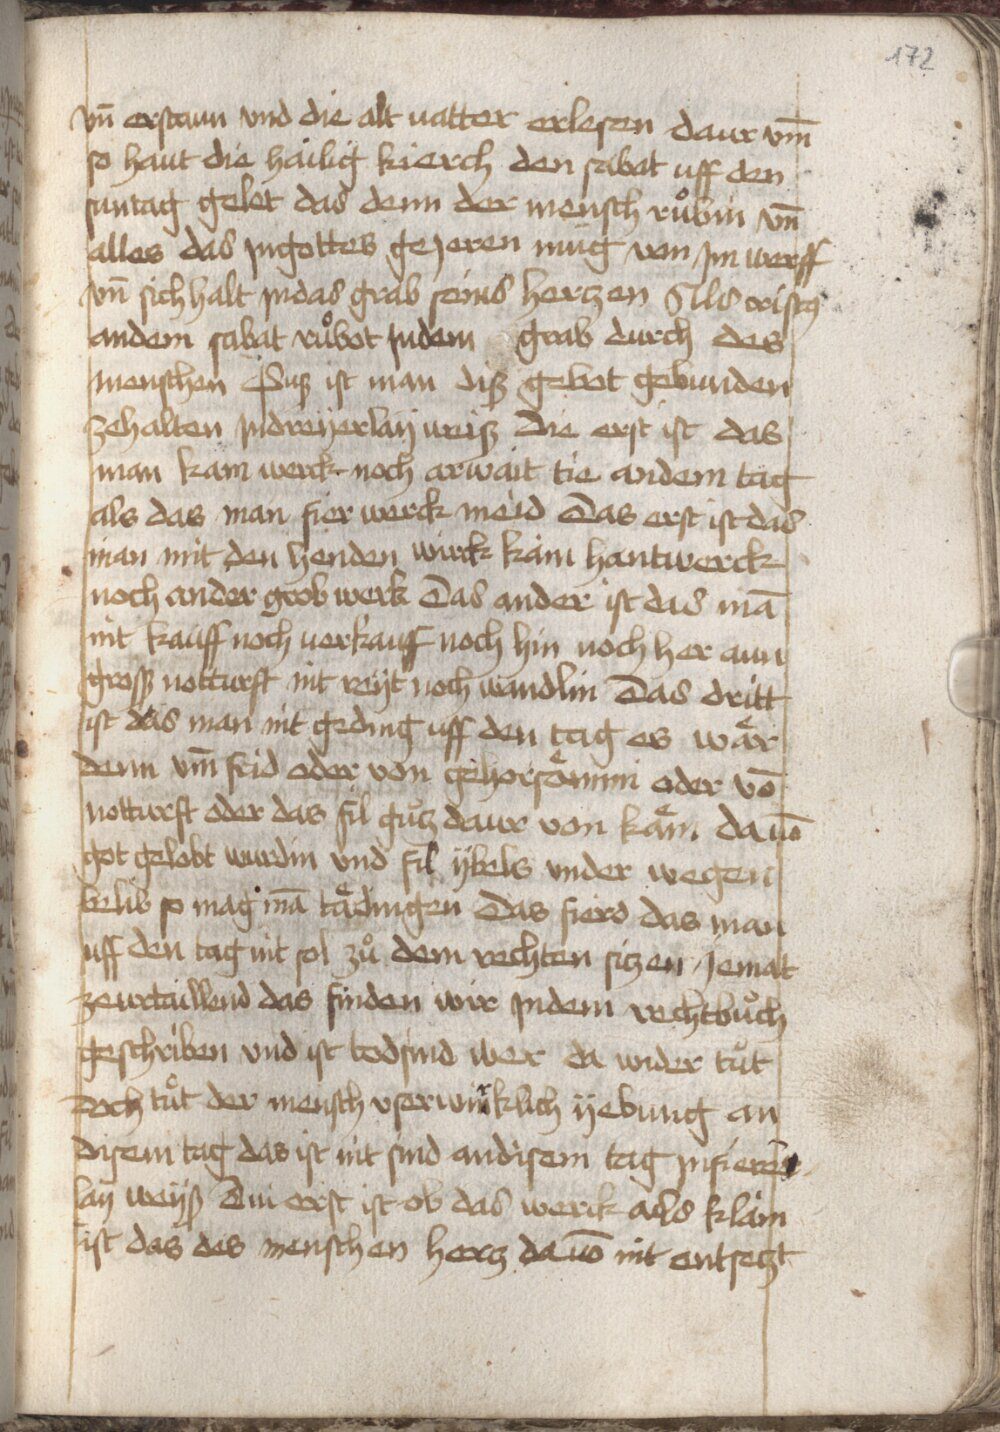 172
vn̄ erstaun vnd die alt uatter erlesen daur vm̄
so haut die hailig kierch den sabat uff den
suntag gelet das denn der mensch růbin vn̄
alles das jngottes gejeren mug von jm werff
vn̄ sich halt jndas grab seins hertzen Als cristus
andem sabat růbot jndem grab durch des
menschen Suß ist man diß gebot gebunden
zehalten jndreÿerlaÿ weiß Die erst ist das
man kain werck noch arwait tie andem tag
als das man fier werck meid Das erst ist das
man mit den henden wirck kain hantwerck
noch ander grob werk Das ander ist das mā
nit kauff noch uerkauff noch hin noch her aun
groß notturft nit reÿt noch wandlin Das dritt
ist das man nit geding uff den tag es wår
denn vm̄ frid oder von gehorsåmmi oder vō
notturft oder das fil gůtz daur von kåm dauō
got gelobt wurdin vnd fil ÿbels vnder wegen
belib so mag mā tådingen Das fierd das man
uff den tag nit sol zů dem rechten sitzen jemat
zeurtaillend das finden wir jndem rechtbůch
geschriben vnd ist todsind wer da wider tůt
Doch tůt der mensch vserwirklich ÿebung an
disem tag das ist nit sind andisem tag jnfierer
laÿ weÿß Dui erst ist ob das werck als klain
ist das des menschen hertz dauō nit entsetzt